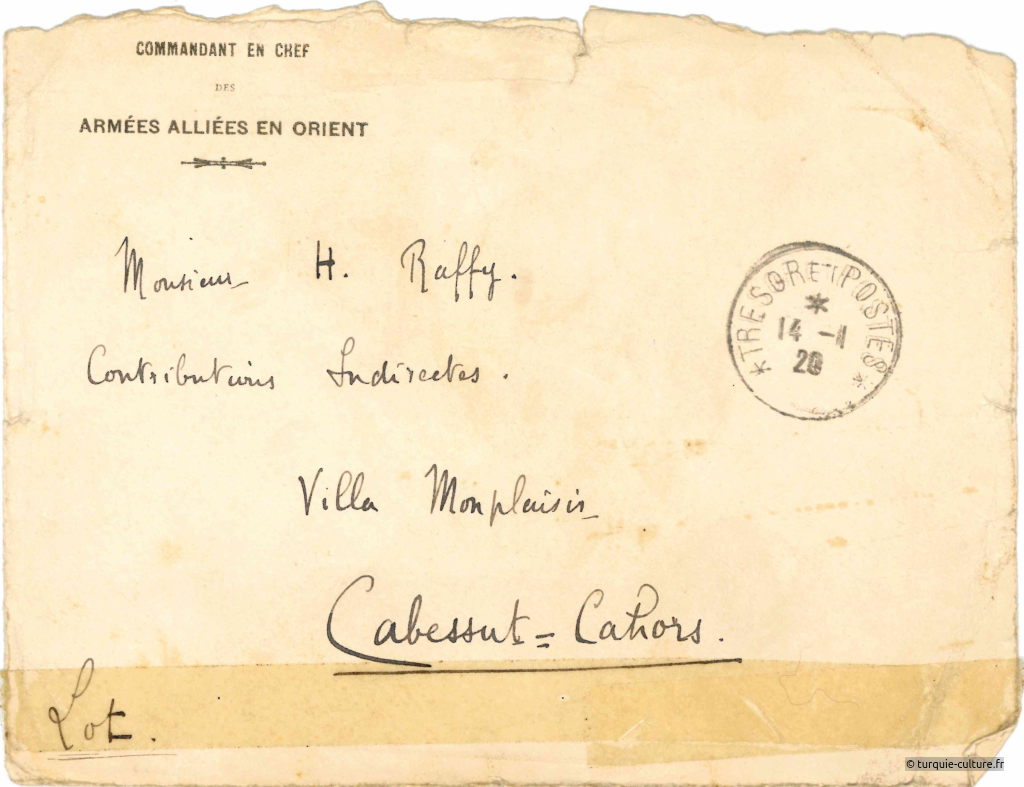 COMMANDANT EN CHEF
DES
ARMÉES ALLIÉES EN ORIENT
Monsieur H. Raffy.
Contributions Indirectes.
TRESOR ET POSTES
14 -1
20
Villa Monplaisir
Cabessut = Cahors.
Lot.
© turquie-culture.fr